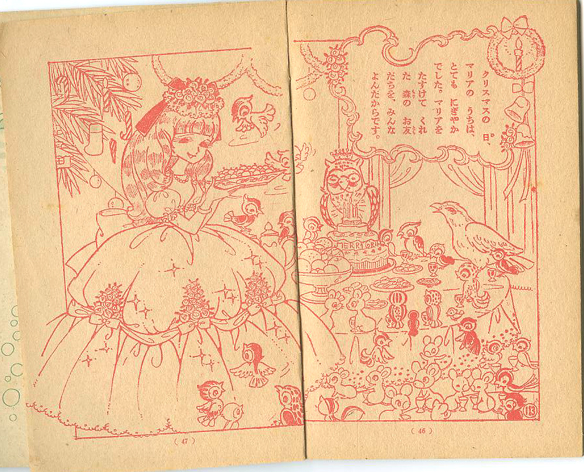 クリスマスの 日、
マリアの うちは、
とても にぎやか
でした。マリアを
たすけて くれ
た 森の お友
だちを、みんな
よんだからです。
MERRY
(46)
(47)